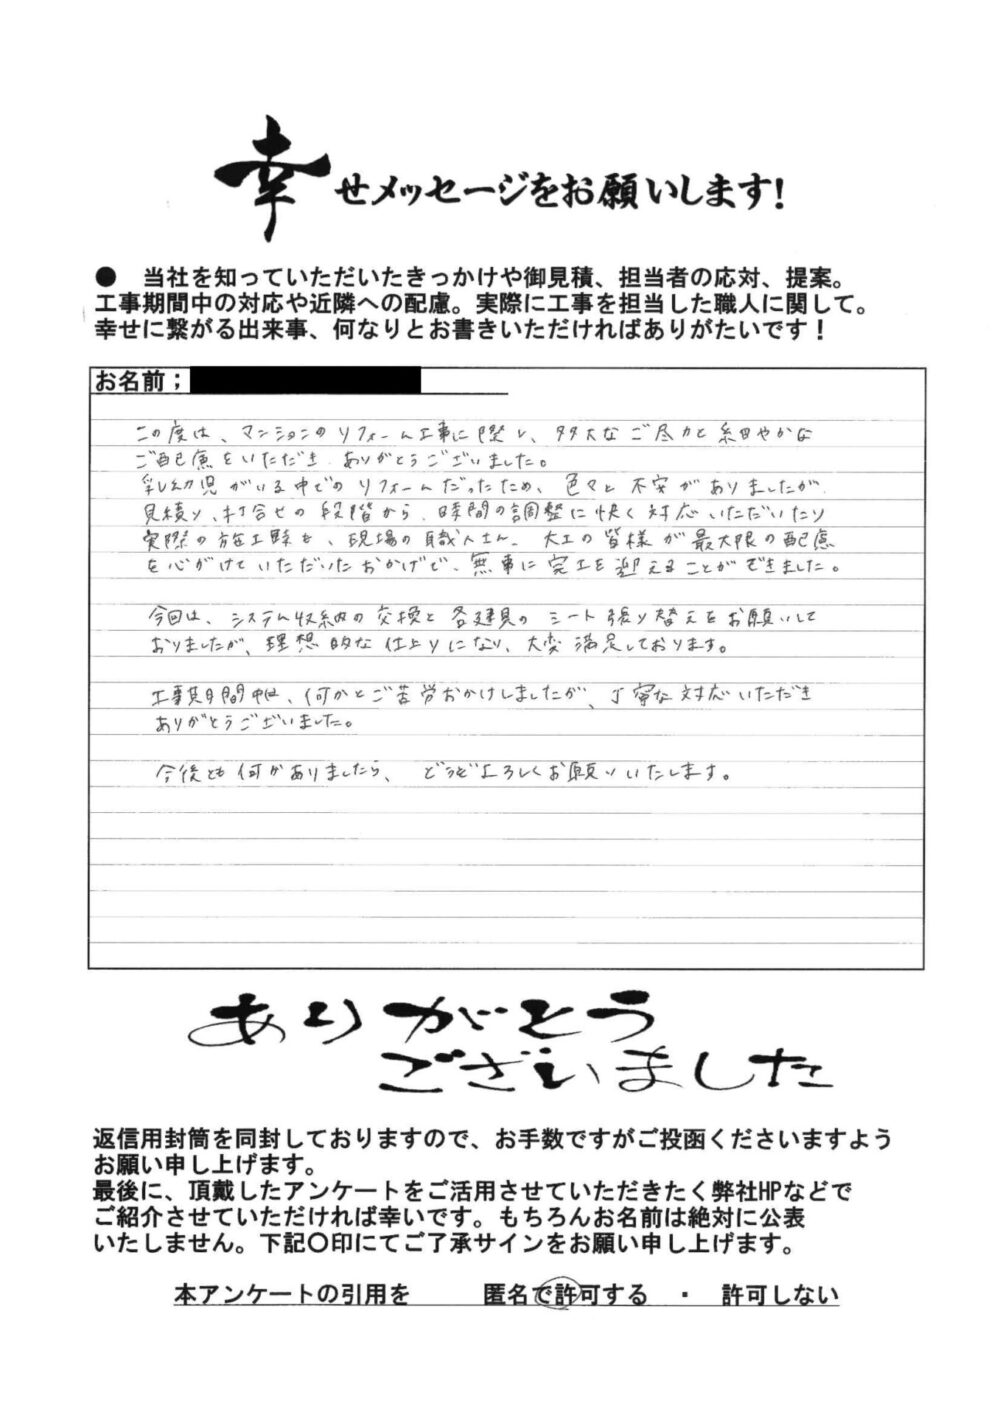 幸せメッセージをお願いします！
● 当社を知っていただいたきっかけや御見積、担当者の応対、提案。
工事期間中の対応や近隣への配慮。実際に工事を担当した職人に関して。
幸せに繋がる出来事、何なりとお書きいただければありがたいです！
お名前；
この度は、マンションのリフォーム工事に際し、多大なご尽力と細やかな
ご配慮をいただき ありがとうございました。
乳幼児がいる中でのリフォームだったため、色々と不安がありましたが
見積り、打合せの段階から、時間の調整に快く対応いただいたり
実際の施工時も、現場の職人さん、大工の皆様が最大限の配慮
を心がけていただいたおかげで、無事に完工を迎えることができました。
今回は、システム収納の交換と各建具のシート張り替えをお願いして
おりましたが、理想的な仕上りになり、大変満足しております。
工事期間中は、何かとご苦労おかけしましたが、丁寧な対応いただき
ありがとうございました。
今後とも何かありましたら、どうぞよろしくお願いいたします。
ありがとう
ございました
返信用封筒を同封しておりますので、お手数ですがご投函くださいますよう
お願い申し上げます。
最後に、頂戴したアンケートをご活用させていただきたく弊社HPなどで
ご紹介させていただければ幸いです。もちろんお名前は絶対に公表
いたしません。下記〇印にてご了承サインをお願い申し上げます。
本アンケートの引用を 匿名で許可する ・ 許可しない